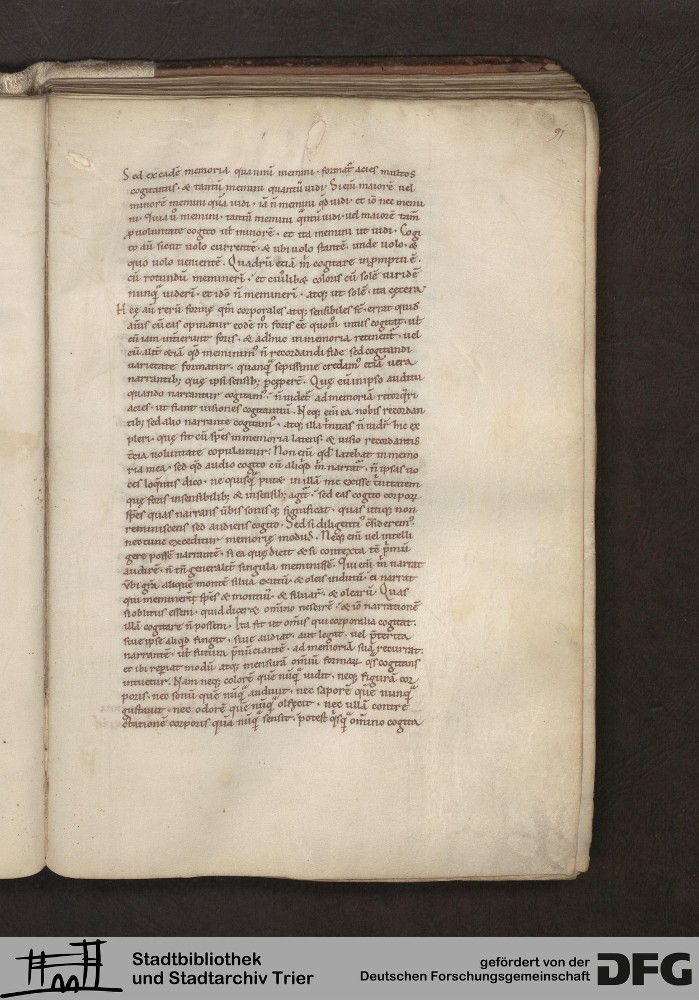 91
Sed ex eadē memoria qua unū memini · format᷑ acies multos
cogitantis · & tantū memini quantū uidi · Si enī maiorē uel
minorē memini quā uidi · iā n̄ memini qd uidi · et iō nec memi
ni · tantū memini uidi · uel maiorē tam̄
uoluntate cogito ul minorē · et ita memini ut uidi · Cogi
to aū sicut uolo currentē · & ubi uolo stantē · unde uolo · &
quo uolo uenientē · Quadrū etiā m̄ cogitare inpromptu ē ·
cū rotundū meminerī · et cuiuslibet coloris cū solē uiridē
nunqᵃ uiderī · et idō n̄ meminerī · atq; ut solē · ita cetera
Hęę aū rerū formę qm̄ corporales atq; sensibiles st̄ · errat quidē
anīus cū eas opinatur eodē m̄ foris eē quom̄ intus cogitat · ul
cū iam interierunt foris · & adhuc in memoria retinent᷑ · uel
cū alit᷑ &iā qd meminim᷒ n̄ recordandi fide sed cogitandi
uarietate formatur · quanqᵃ sepissime credam᷒ etiā uera
narrantib; quę ipsi sensib; pceperē · Quę cū in ipso auditu
quando narrantur cogitam᷒ · n̄ uidet᷑ ad memoriā retorqueri
acies · ut fiant uisiones cogitantiū · Neq; enī ea nobis recordan
tib; sed alio narrante cogitam᷒ · atq; illa trinitas n̄ uidet᷑ hic ex
pleri · quę fit cū spēs in memoria latens · & uisio recordantis
tercia uoluntate copulantur · Non enī qd latebat in memo
ria mea · sed qd audio cogito cū aliqd m̄ narrat᷑ · n̄ ipsas uo
ces loquentis dico · ne quisqᵃ putet in illā me exisse trinitatem
quę foris in sensibilib; & in sensib; agit᷑ · sed eas cogito corporū
spēs quas narrans uerbis sonisq; significat · quas utiq; non
reminiscens sed audiens cogito · Sed si diligenti᷒ considerem᷒
nec tunc exceditur memorię modus · Neq; enī uel intelli
gere possē narrantē · si ea quę dicit & si contexta tc̄ primū
audirē · n̄ tn̄ generalit᷑ singula meminissē · Qui enī m̄ narrat
uerbi gra aliquē montē silua exutū · & oleis indutū · ei narrat
qui meminerī spēs & montiū · & siluarū · & olearū · Quas
si oblitus essem · quid diceret omīno nescirē · & iō narrationē
illā cogitare n̄ possem · Ita fit ut omīs qui corporalia cogitat ·
siue ipse aliqd fingat · siue audiat aut legat · uel preterita
narrantē · ul futura pronuntiantē · ad memoriā suā recurrat ·
et ibi reperiat modū atq; mensurā omīum formarū quas cogitans
intuetur · Nam neq; colorē quē nūqᵃ uidit · neq; figurā cor
poris · nec sonū quē nūqᵃ audiuit · nec saporē quē nunqᵃ
gustauit · nec odorē quē nūqᵃ olfecit · nec ullā contre
ctationē corporis quā nūqᵃ sensit · potest quisqᵃ omīno cogita
Stadtbibliothek
und Stadtarchiv Trier
gefördert von der
Deutschen Forschungsgemeinschaft
DFG